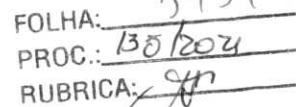 FOLHA:
PROC.: 130/2021
RUBRICA: